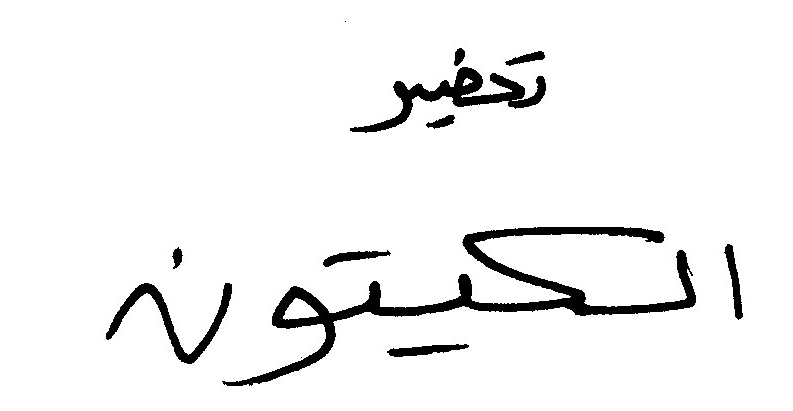 تحضير
الكيتون